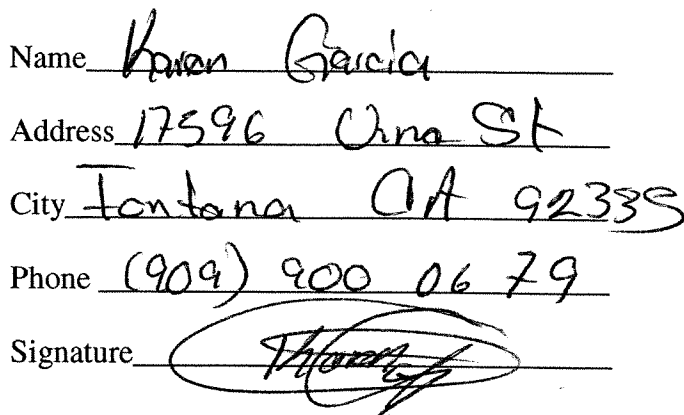 Name Karen Garcia
Address 17596 Una St
City Fontana CA 92335
Phone (909) 900 06 79
Signature